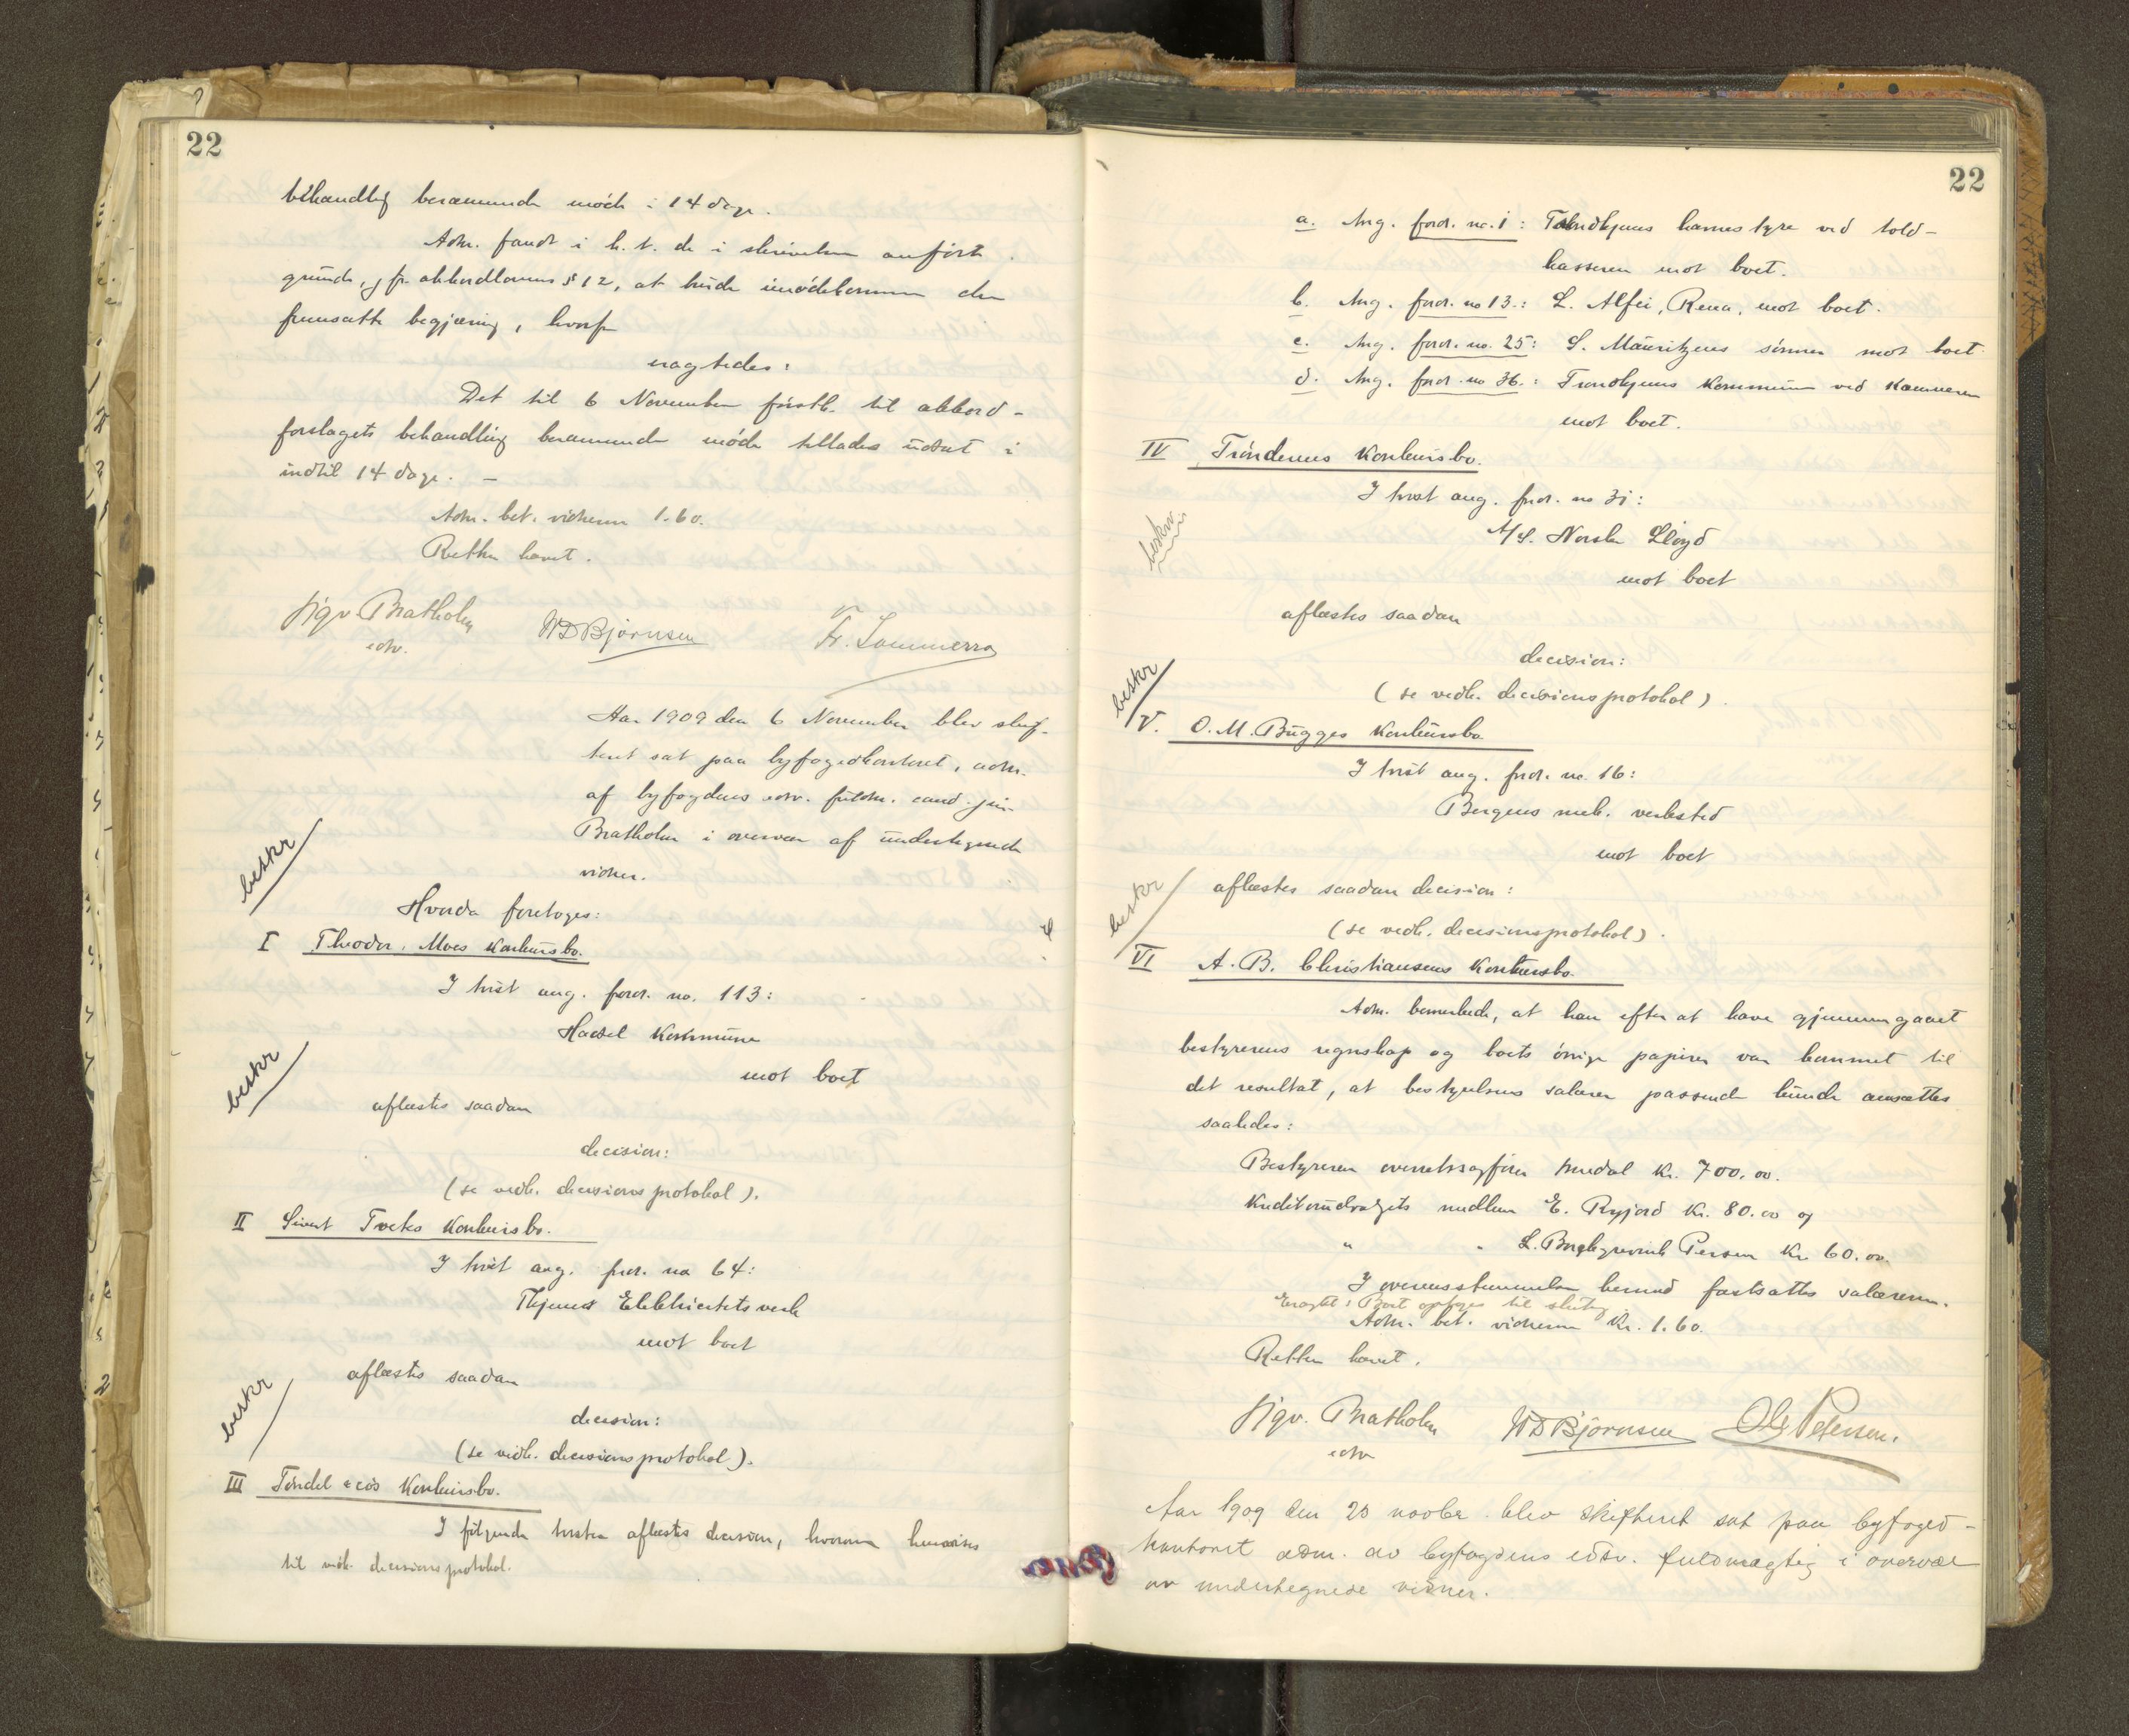 22
behandling berammede møde i 14 dage.
Adm. fandt i h. t. de i skrivelsen anførte
grunde, jfr. akkordlovens § 12, at burde imødekomme den
fremsatte begjæring, hvorfor
eragtedes:
Det til 6 November førstk. til akkord-
forslagets behandling berammede møde tillades udsat i
indtil 14 dage. –
Adm. bet. vidnerne 1.60.
Retten hævet.
Sigv Bratholm
edv.
WDBjørnsen
Fr. Sommerro
Aar 1909 den 6 November blev skif-
teret sat paa byfogedkontoret, adm.
af byfogdens edv. fuldm. cand. jur.
Bratholm i overvær af undertegnede
vidner.
beskr
Hvorda foretoges:
I Theodor Moes Konkursbo.
I tvist ang. ford. no. 113:
Hadsel Kommune
mot boet
beskr
aflæstes saadan
decision:
(se vedk. decisionsprotokol).
II Sivert Tvetes Konkursbo.
I tvist ang. ford. no 64:
Thjems Elektricitetsverk
mot boet
beskr
aflæstes saadan
decision:
(se vedk. decisionsprotokol).
III Tøndel & cos Konkursbo.
I følgende tvister aflæstes decision, hvorom henvises
til vedk. decisionsprotokol.
22
a. Ang. ford. no. 1: Trondhjems havnestyre ved told-
kassereren mot boet.
b. Ang. ford. no 13.: L. Alfei, Rena, mot boet.
c. Ang. ford. no. 25: S. Mauritzens sønner mot boet
d. Ang. ford. no 36.: Trondhjems Kommune ved Kæmneren
mot boet.
IV Trøndernes Konkursbo.
I tvist ang. ford. no 31:
beskr
A/S. Norske Lloyd
mot boet
aflæstes saadan
decision:
(se vedk. decisionsprotokol).
beskr
V. O. M. Bugges Konkursbo
I tvist ang. ford. no. 16:
Bergens mek. verksted
mot boet
aflæstes saadan decision:
beskr
(se vedk. decisionsprotokol).
VI A. B. Christiansens Konkursbo.
Adm. bemerkede, at han efter at have gjennemgaaet
bestyrerens regnskap og boets øvrige papirer var kommet til
det resultat, at bestyrelsens salærer passende kunde ansættes
saaledes:
Bestyreren overretssagfører Kr. 700.00.
Kreditorudvalgets medlem E. Ryjord Kr. 80.00 og
" " L. Borchgrevink Persen Kr 60.00.
I overensstemmelse hermed fastsattes salærerne.
Eragtet: Boet optages til slutning
Adm. bet. vidnerne Kr. 1.60.
Retten hævet.
Sigv. Bratholm
edv
WDBjørnsen
Ole Petersen.
Aar 1909 den 20 novbr. blev skifteret sat paa byfoged-
kontoret adm. av byfogdens edsv. fuldmægtig i overvær
av undertegnede vidner.